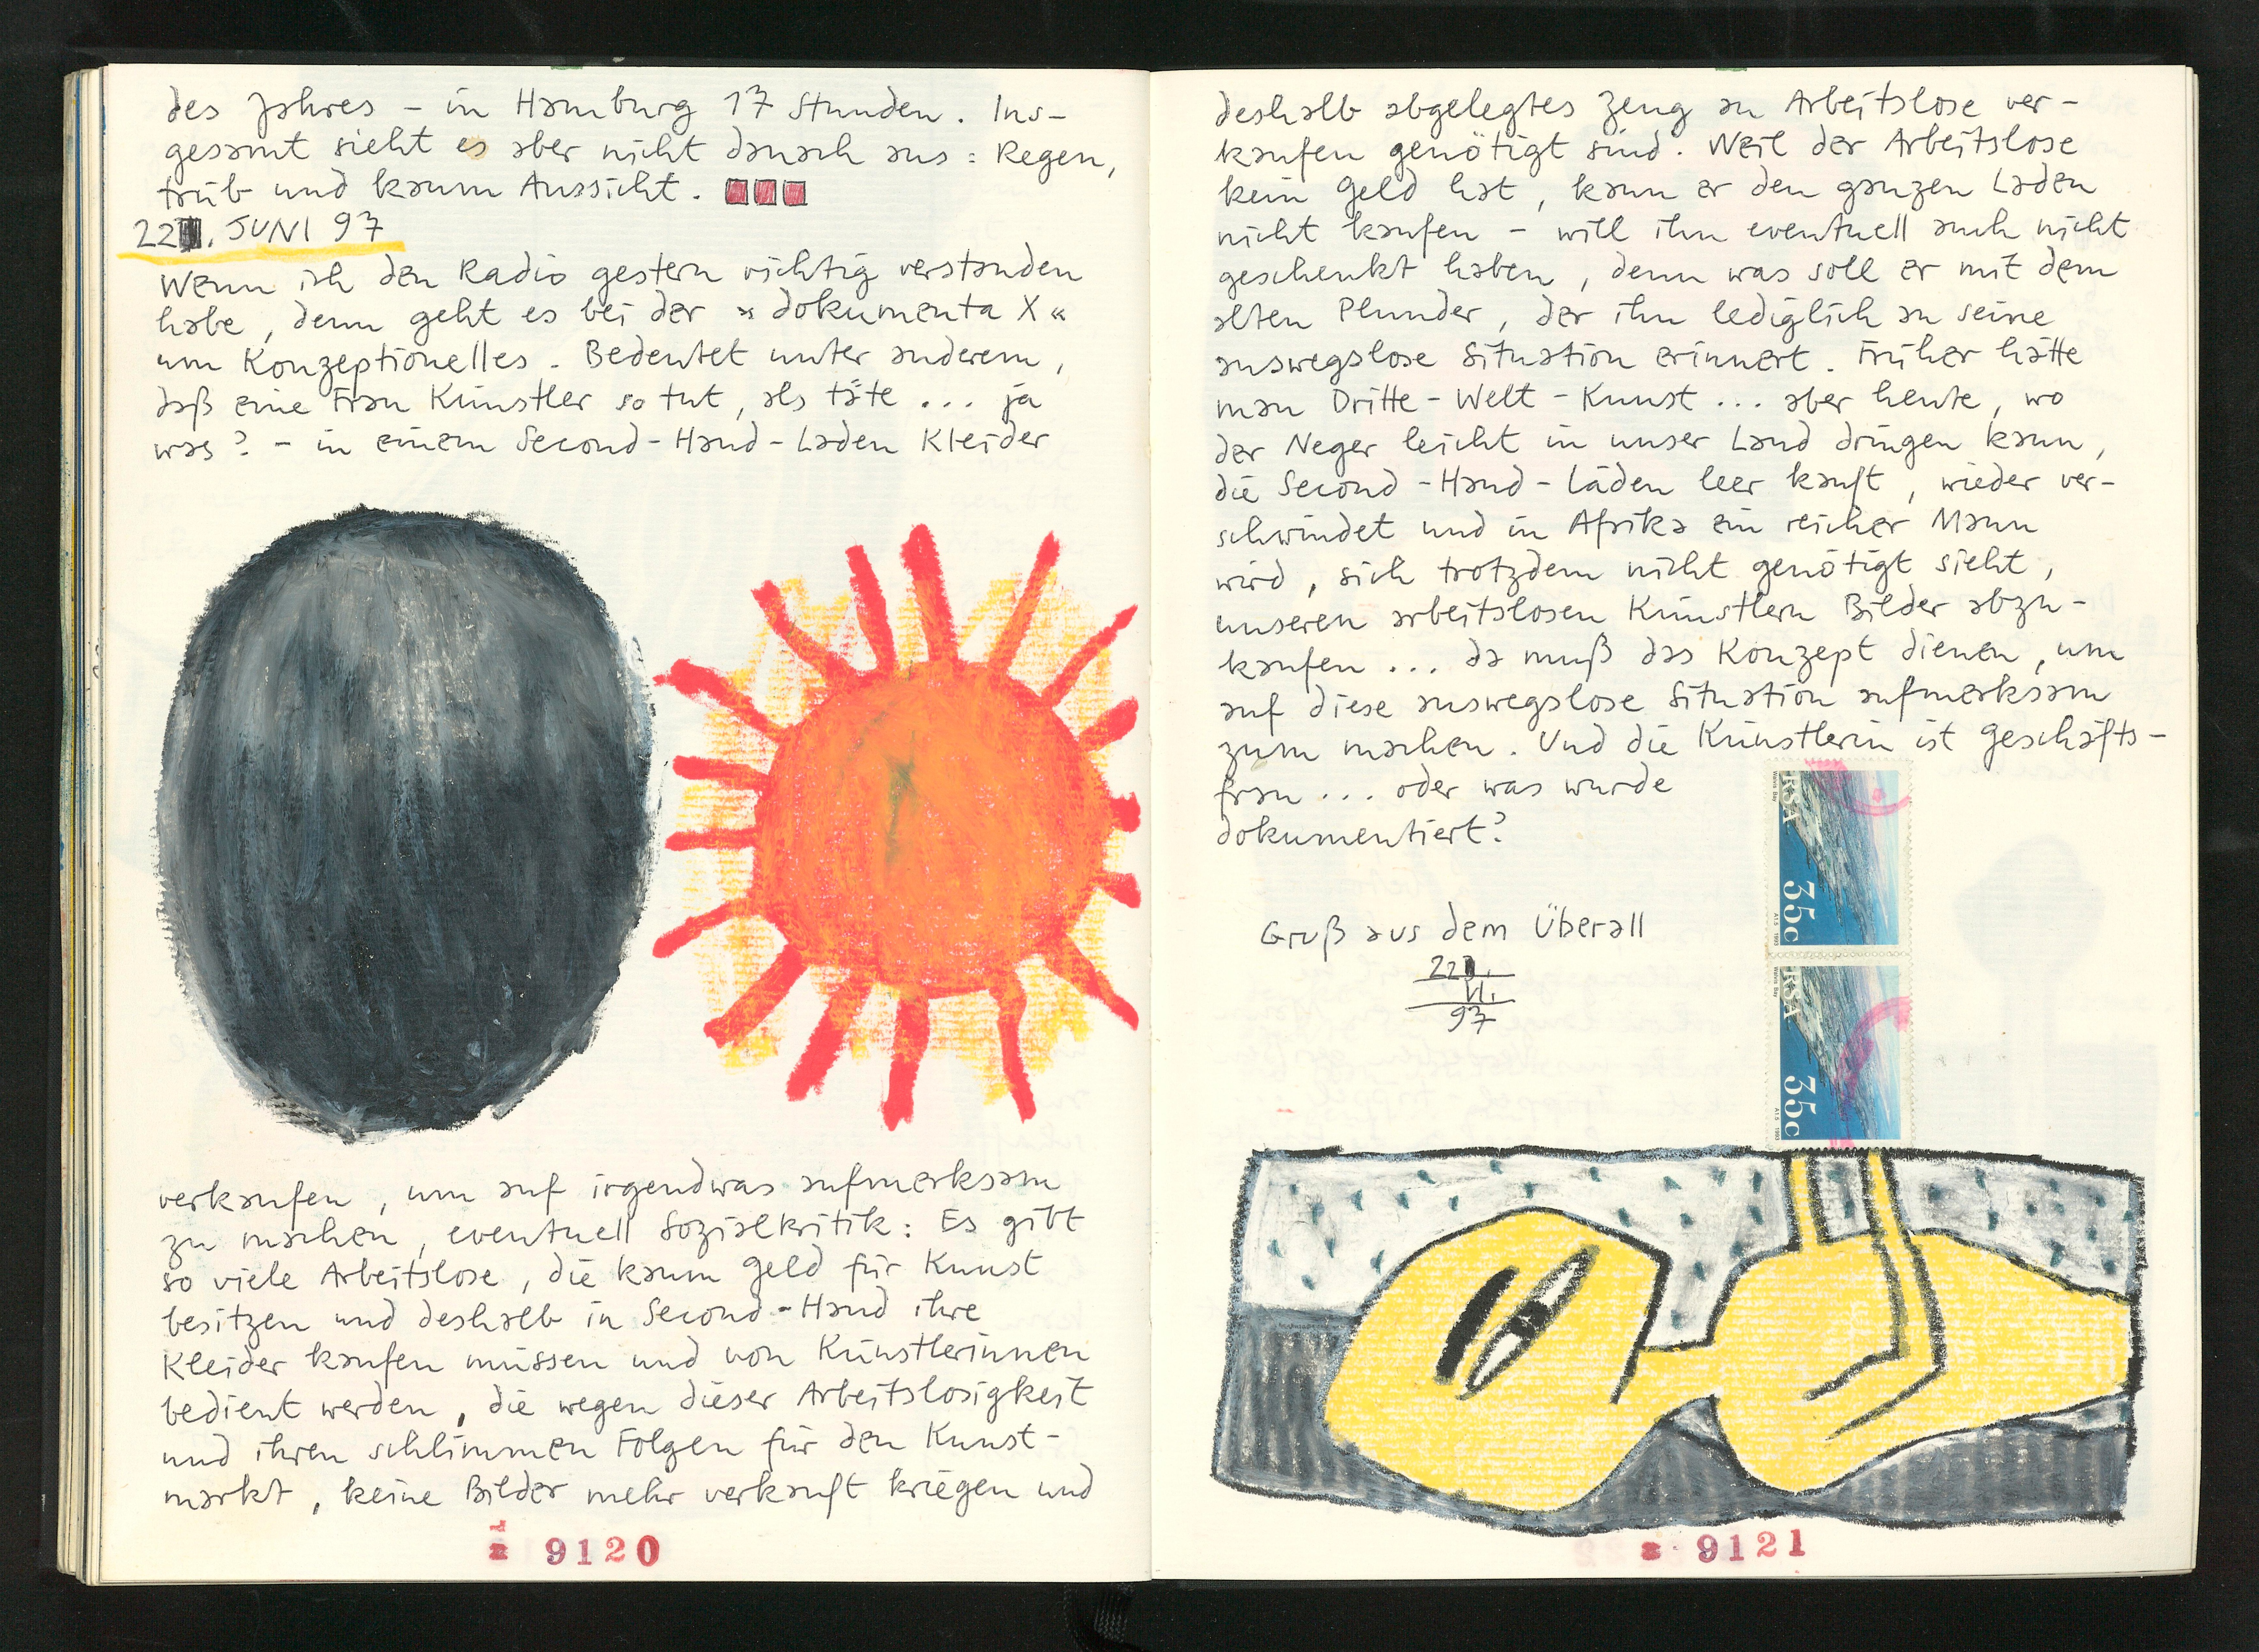 des Jahres – in Hamburg 17 Stunden. Ins-
gesamt sieht es aber nicht danach aus: Regen,
trüb und kaum Aussicht.
22. JUNI 97
Wenn ich den Radio gestern richtig verstanden
habe, denn geht es bei der »dokumenta X«
um Konzeptionelles. Bedeutet unter anderem,
daß eine Frau Künstler so tut, als täte ... ja
was? – in einem Second-Hand-Laden Kleider
verkaufen, um auf irgendwas aufmerksam
zu machen, eventuell Sozialkritik: Es gibt
so viele Arbeitslose, die kaum Geld für Kunst
besitzen und deshalb in Second-Hand ihre
Kleider kaufen müssen und von Künstlerinnen
bedient werden, die wegen dieser Arbeitslosigkeit
und ihren schlimmen Folgen für den Kunst-
markt, keine Bilder mehr verkauft kriegen und
9120
deshalb abgelegtes Zeug an Arbeitslose ver-
kaufen genötigt sind. Weil der Arbeitslose
kein Geld hat, kann er den ganzen Laden
nicht kaufen – will ihn eventuell auch nicht
geschenkt haben, denn was soll er mit dem
alten Plunder, der ihn lediglich an seine
auswegslose Situation erinnert. Früher hätte
man Dritte-Welt-Kunst ... aber heute, wo
der Neger leicht in unser Land dringen kann,
die Second-Hand-Läden leer kauft, wieder ver-
schwindet und in Afrika ein reicher Mann
wird, sich trotzdem nicht genötigt sieht,
unseren arbeitslosen Künstlern Bilder abzu-
kaufen ... da muß das Konzept dienen, um
auf diese auswegslose Situation aufmerksam
zum machen. Und die Künstlerin ist Geschäfts-
frau ... oder was wurde
dokumentiert?
Gruß aus dem Überall
22.
VI.
97
RSA
Walvis Bay
35c
A15 1993
RSA
Walvis Bay
35c
A15 1993
9121